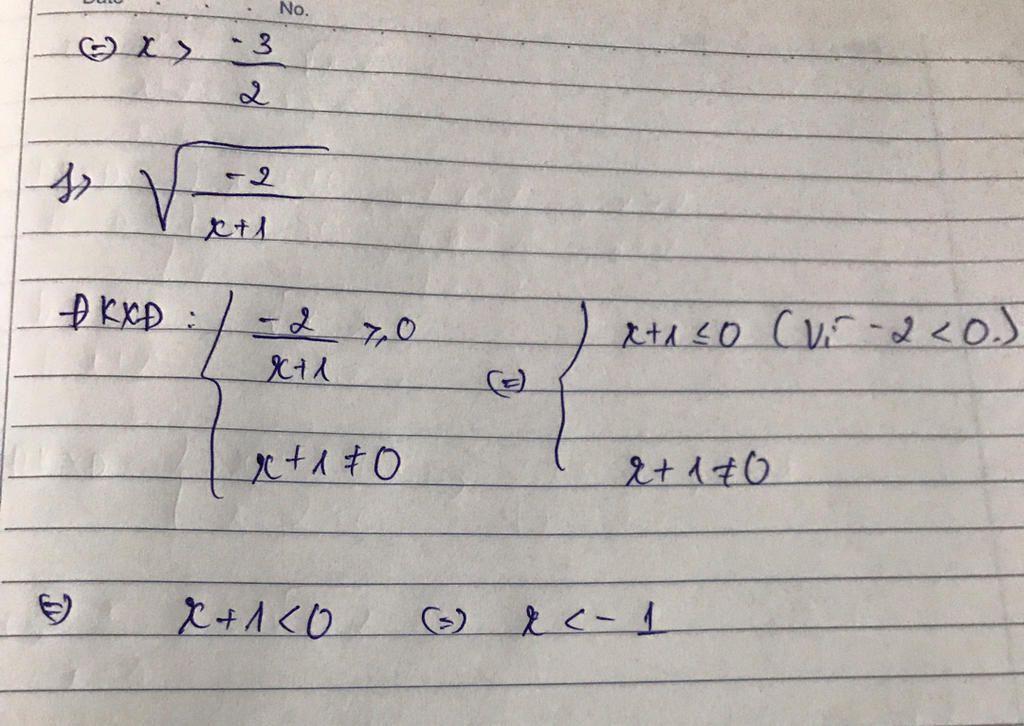 No.
(=) x > -3/2
f, √(-2/(x+1))
ĐKXĐ : { -2/(x+1) ≥ 0 (=) { x+1 ≤ 0 (Vì -2 < 0.)
x+1 ≠ 0 x+1 ≠ 0
(=) x+1 < 0 (=) x < -1